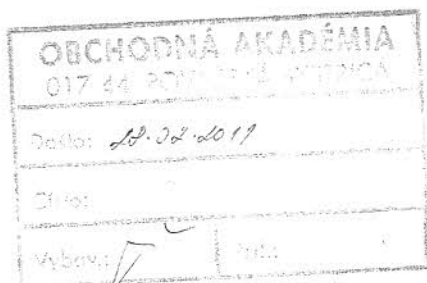 OBCHODNÁ AKADÉMIA
017 44 POVAŽSKÁ BYSTRICA
Došlo: 28.02.2011
Číslo:
Vybav.: